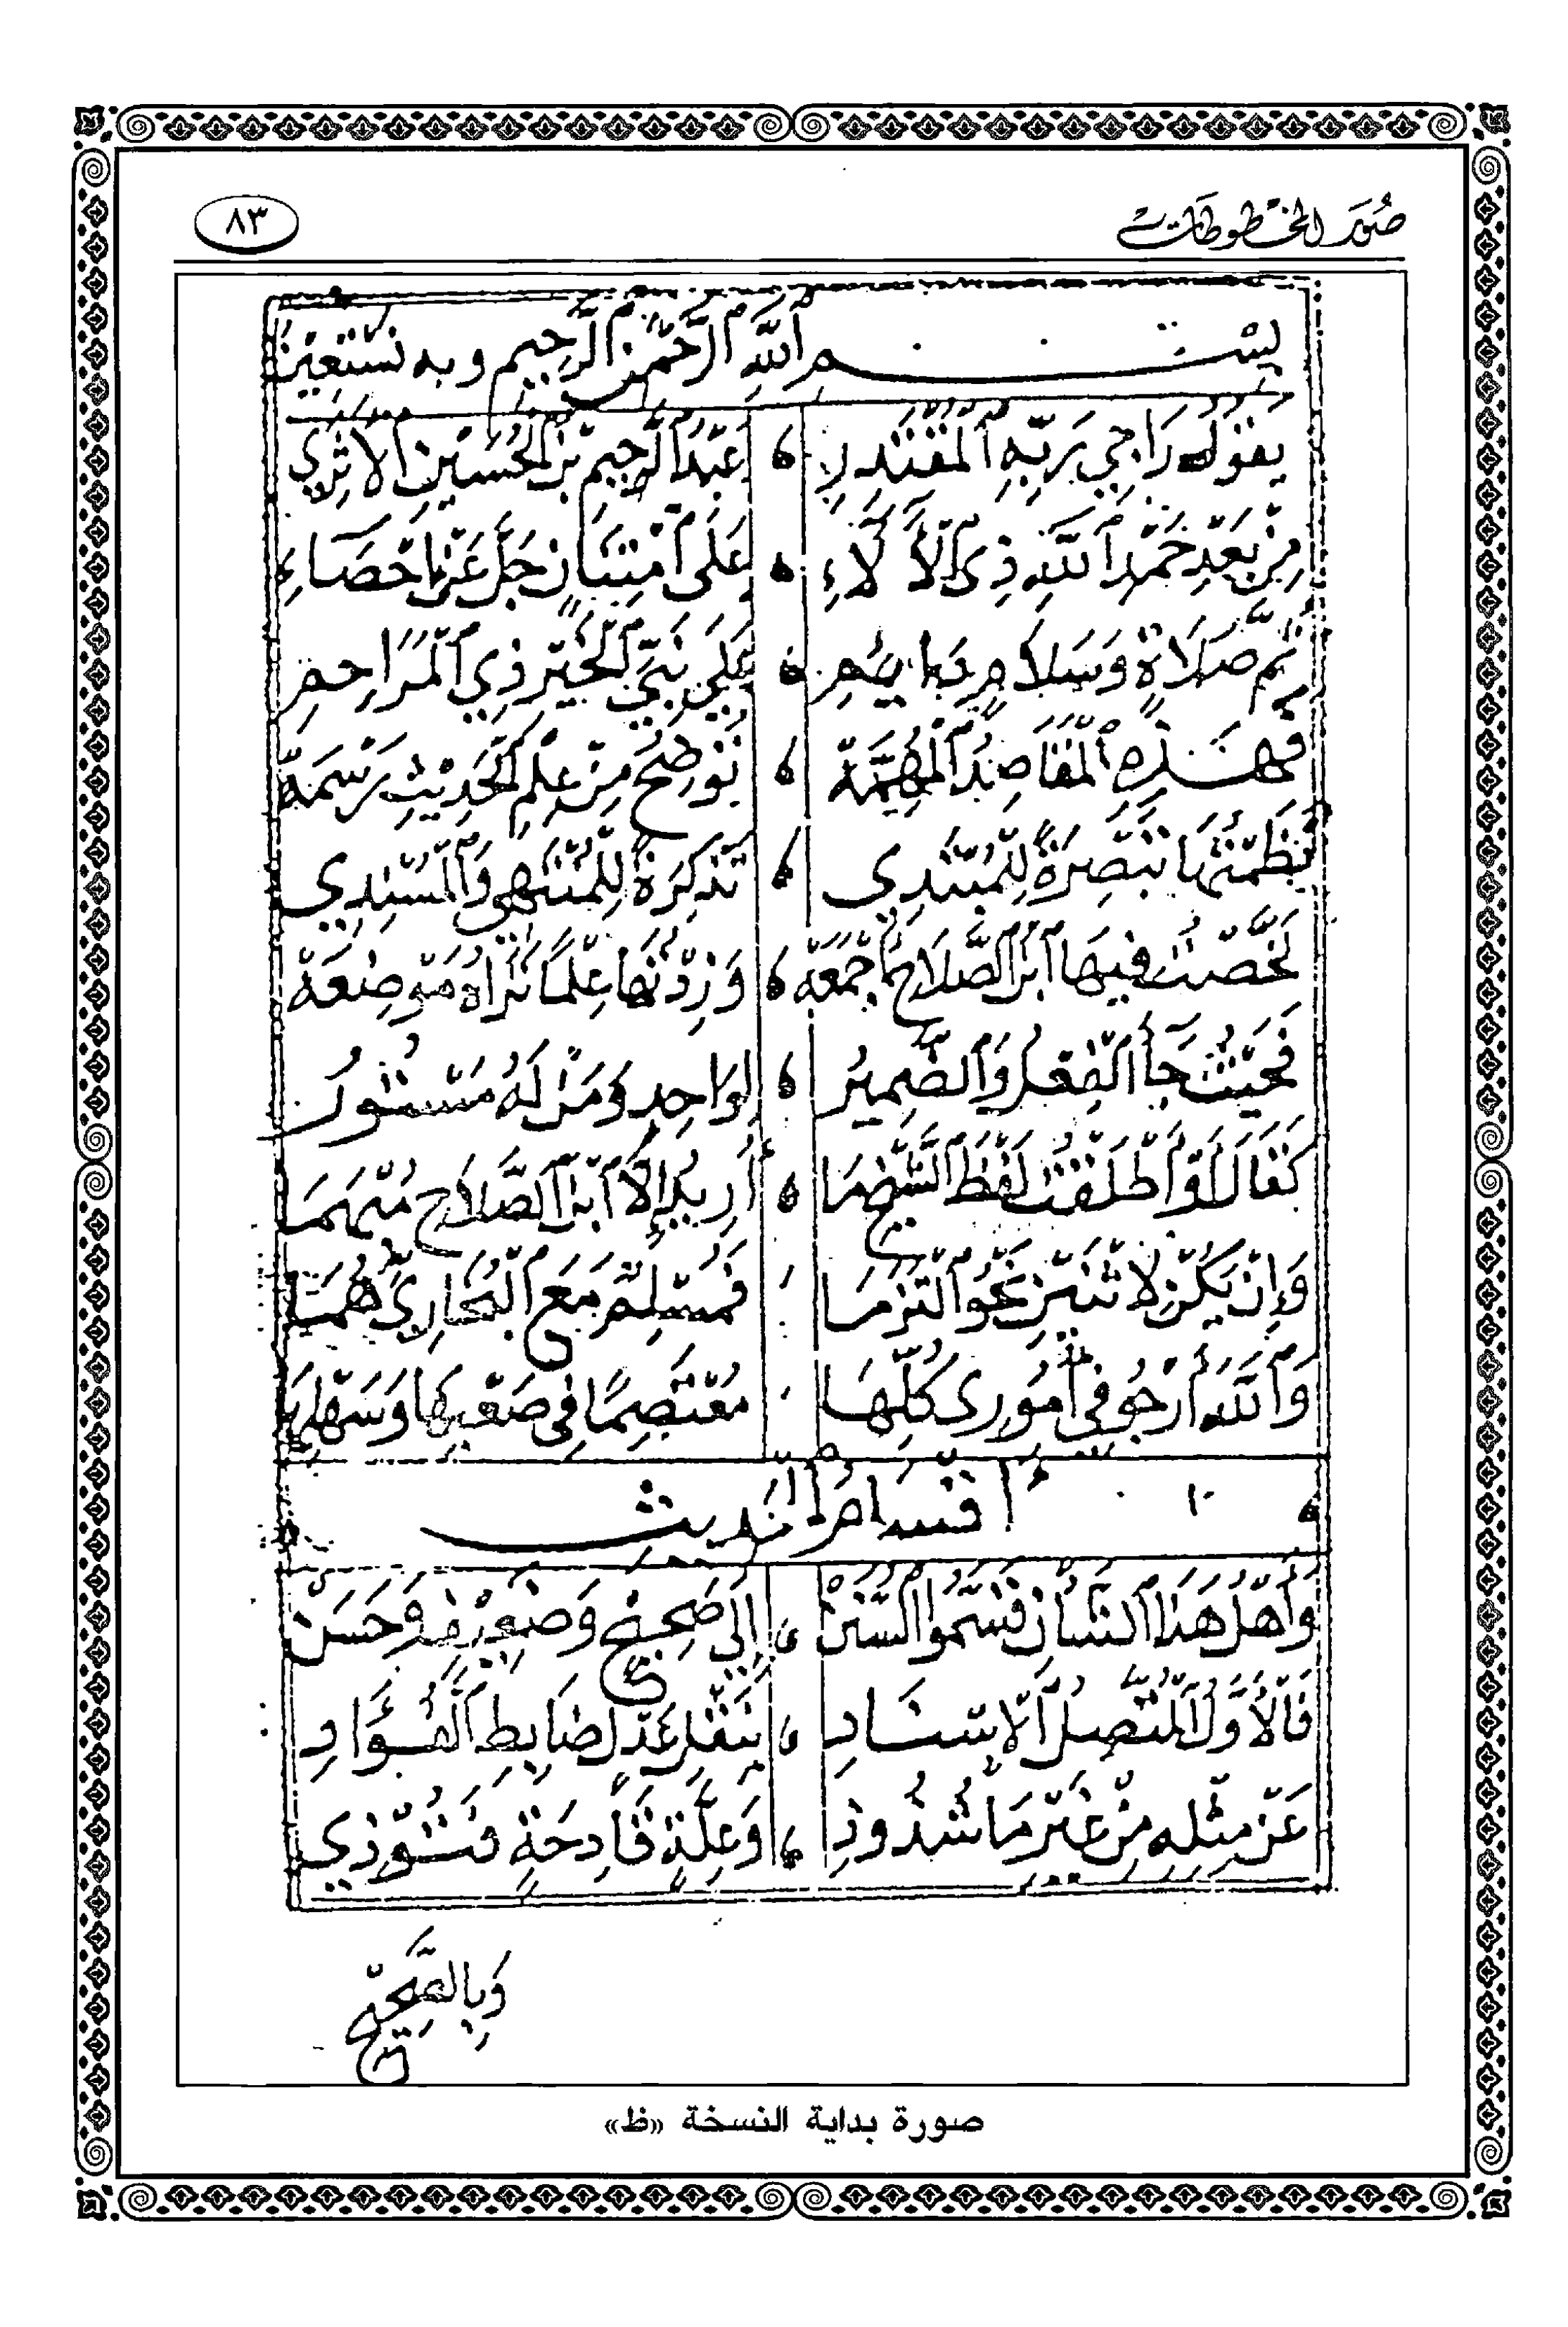 صُوَر المخطوطات
٨٣
بسم اللَّهِ الرَّحْمَنِ الرَّحِيمِ وبه نَسْتَعِينُ
يَقُولُ رَاجِي رَبِّهِ الْمُقْتَدِرِ عَبْدُ الرَّحِيمِ بْنُ الْحُسَيْنِ الْأَثَرِي
مِنْ بَعْدِ حَمْدِ اللَّهِ ذِي الْآلَاءِ عَلَى امْتِنَانٍ جَلَّ عَنْ إِحْصَاءِ
ثُمَّ صَلَاةٍ وَسَلَامٍ دَايِمِ عَلَى نَبِيِّ الْخَيْرِ ذِي الْمَرَاحِمِ
فَهَذِهِ الْمَقَاصِدُ الْمُهِمَّهْ تُوَضِّحُ مِنْ عِلْمِ الْحَدِيثِ رَسْمَهْ
نَظَمْتُهَا تَبْصِرَةً لِلْمُبْتَدِي تَذْكِرَةً لِلْمُنْتَهِي وَالْمُسْنِدِي
لَخَّصْتُ فِيهَا ابْنَ الصَّلَاحِ أَجْمَعَهْ وَزِدْتُهَا عِلْمًا تَرَاهُ مَوْضِعَهْ
فَحَيْثُ جَا الْفِعْلُ وَالضَّمِيرُ لِوَاحِدٍ وَمَنْ لَهُ مَسْتُورُ
كَقَالَ أَوْ أَطْلَقْتُ لَفْظَ الشَّيْخِ مَا أُرِيدُ إِلَّا ابْنَ الصَّلَاحِ مُبْهَمَا
وَإِنْ يَكُنْ لِاثْنَيْنِ نَحْوُ الْتَزَمَا فَمُسْلِمٌ مَعَ الْبُخَارِيِّ هُمَا
وَاللَّهَ أَرْجُو فِي أُمُورِي كُلِّهَا مُعْتَصِمًا فِي صَعْبِهَا وَسَهْلِهَا
١٠ أقسام الحديث
وَأَهْلُ هَذَا الشَّأْنِ قَسَّمُوا السُّنَنْ إِلَى صَحِيحٍ وَضَعِيفٍ وَحَسَنْ
فَالْأَوَّلُ الْمُتَّصِلُ الْإِسْنَادِ بِنَقْلِ عَدْلٍ ضَابِطِ الْفُؤَادِ
عَنْ مِثْلِهِ مِنْ غَيْرِ مَا شُذُوذِ وَعِلَّةٍ قَادِحَةٍ فَتُوذِي
وَبِالصَّحِيحِ
صورة بداية النسخة «ظ»